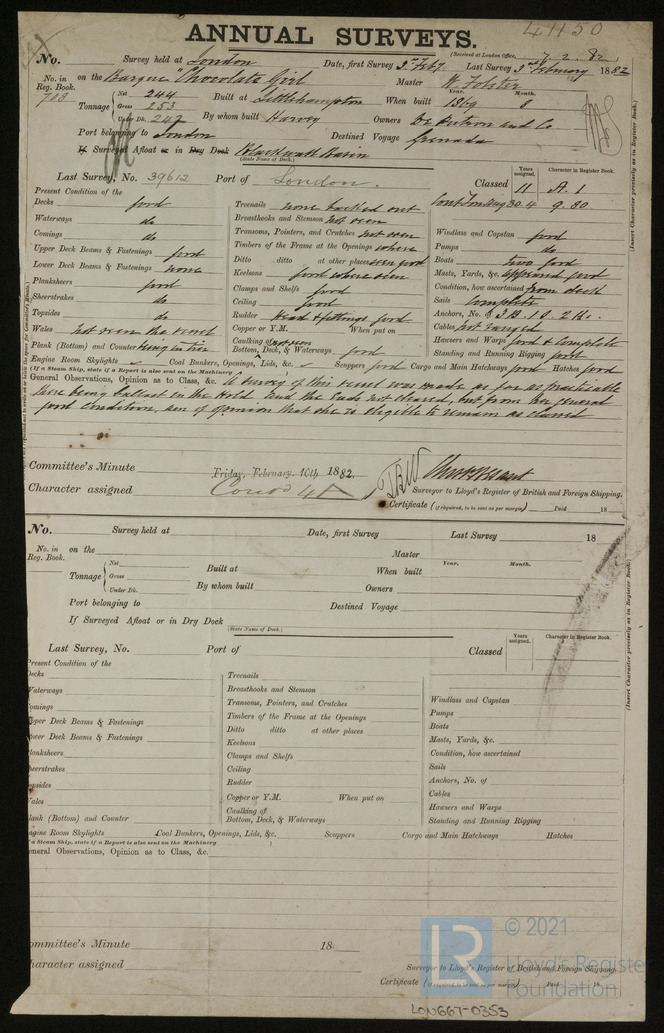 41150
ANNUAL SURVEYS.
(Received at London Office, 7. 2. 82)
No. Survey held at London Date, first Survey 3rd Feby Last Survey 3rd February 1882
No. in Reg. Book. 708 on the Barque "Chocolate Girl" Master W. Foister
Tonnage Net 244 Gross 253 Under Dk. 247 Built at Littlehampton When built Year. 1869 Month. 8
By whom built Harvey Owners and Co
Port belonging to London Destined Voyage Grenada
If Surveyed Afloat or in Dry Dock Blackwall Basin
(State Name of Dock.)
Last Survey, No. 39612 Port of London. Classed Years assigned. 11 Character in Register Book. A. 1
9. 80
(Insert Character precisely as in Register Book.)
Present Condition of the
Decks good
Waterways do
Comings do
Upper Deck Beams & Fastenings good
Lower Deck Beams & Fastenings none
Planksheers good
Sheerstrakes do
Topsides do
Wales not seen the vessel
Plank (Bottom) and Counter being in tier
Treenails none backed out
Breasthooks and Stemson not seen
Transoms, Pointers, and Crutches not seen
Timbers of the Frame at the Openings where
Ditto ditto at other places seen good
Keelsons good where seen
Clamps and Shelfs good
Ceiling good
Rudder Head & fittings good
Copper or Y.M. When put on
Caulking of not seen
Bottom, Deck, & Waterways good
Windlass and Capstan good
Pumps do
Boats two good
Masts, Yards, &c. appeared good
Condition, how ascertained from deck
Sails Complete
Anchors, No. of 3 B. 1 S. 2 K.
Cables not ranged
Hawsers and Warps good & Complete
Standing and Running Rigging good
Engine Room Skylights Coal Bunkers, Openings, Lids, &c. Scuppers good Cargo and Main Hatchways good Hatches good
(If a Steam Ship, state if a Report is also sent on the Machinery)
General Observations, Opinion as to Class, &c. A survey of this vessel was made as far as practicable
there being ballast in the Hold and the Ends not cleared, but from her general
good condition, am of opinion that she is eligible to remain as classed
Committee's Minute Friday, February, 10th 1882.
Character assigned
Surveyor to Lloyd's Register of British and Foreign Shipping.
Certificate (if required, to be sent as per margin) Paid 18
No. Survey held at Date, first Survey Last Survey 18
No. in Reg. Book. on the Master
Tonnage Net Gross Under Dk. Built at When built Year. Month.
By whom built Owners
Port belonging to Destined Voyage
If Surveyed Afloat or in Dry Dock
(State Name of Dock.)
Last Survey, No. Port of Classed Years assigned. Character in Register Book.
(Insert Character precisely as in Register Book.)
Present Condition of the
Decks
Waterways
Comings
Upper Deck Beams & Fastenings
Lower Deck Beams & Fastenings
Planksheers
Sheerstrakes
Topsides
Wales
Plank (Bottom) and Counter
Treenails
Breasthooks and Stemson
Transoms, Pointers, and Crutches
Timbers of the Frame at the Openings
Ditto ditto at other places
Keelsons
Clamps and Shelfs
Ceiling
Rudder
Copper or Y.M. When put on
Caulking of
Bottom, Deck, & Waterways
Windlass and Capstan
Pumps
Boats
Masts, Yards, &c.
Condition, how ascertained
Sails
Anchors, No. of
Cables
Hawsers and Warps
Standing and Running Rigging
Engine Room Skylights Coal Bunkers, Openings, Lids, &c. Scuppers Cargo and Main Hatchways Hatches
(If a Steam Ship, state if a Report is also sent on the Machinery)
General Observations, Opinion as to Class, &c.
Committee's Minute 18
Character assigned
Surveyor to Lloyd's Register of British and Foreign Shipping.
Certificate (if required, to be sent as per margin) Paid 18
© 2021
Lloyd's Register
Foundation
LON667-0353